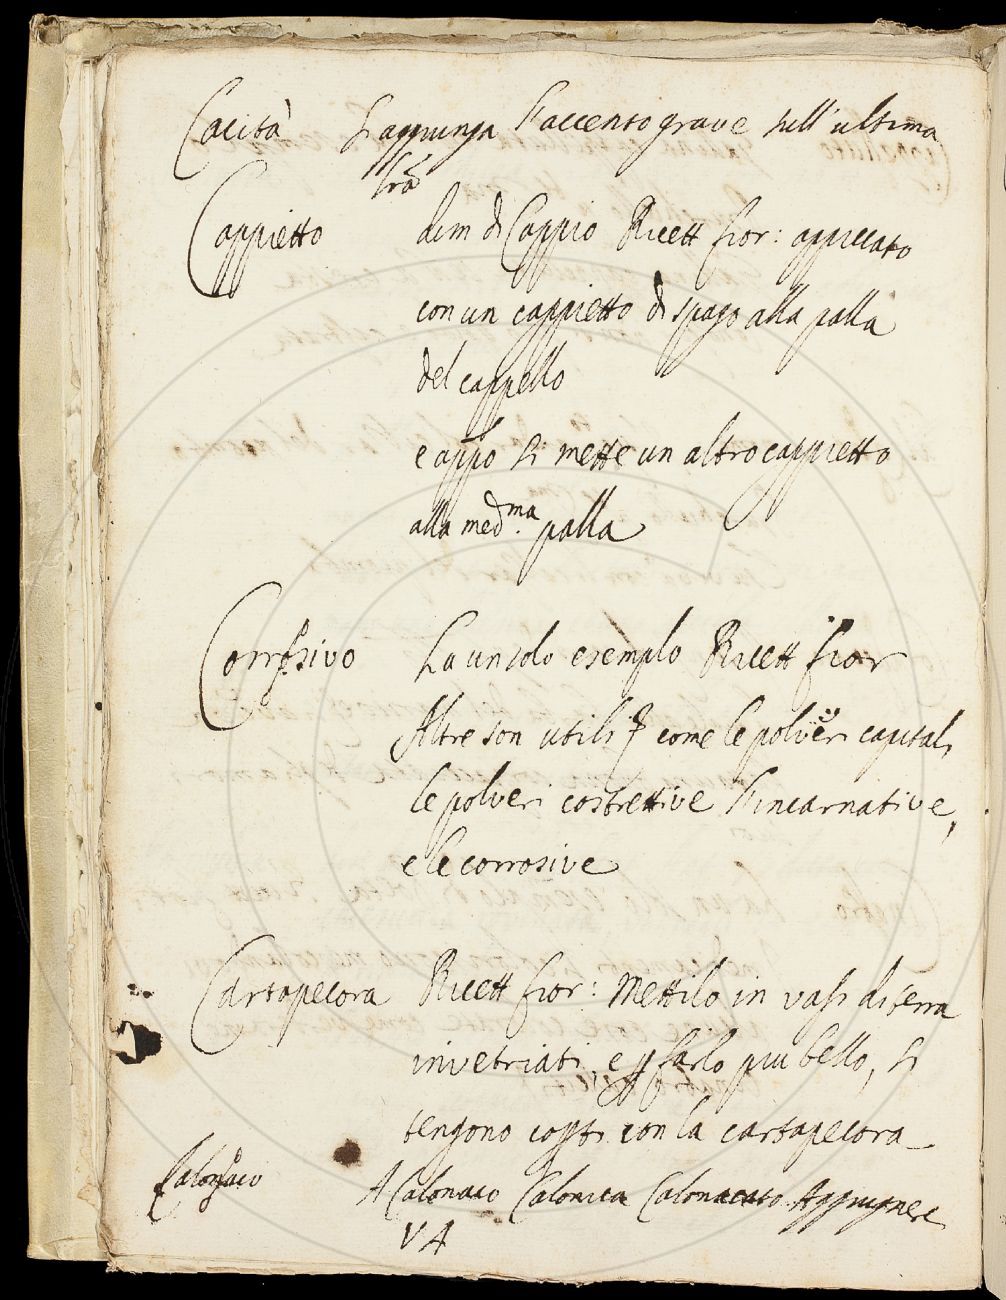 Cacità S'aggiunga l'accento grave sull'ultima
lra
Cappietto dim di Cappio Ricett fior: appiccato
con un cappietto di spago alla palla
del cappello
e appo si mette un altro cappietto
alla med.ma palla
Corrosivo Ha un solo esemplo Ricett fior
Altre son utili come le polveri capitali
le polveri costrettive l'incarnative,
e le corrosive
Cartapecora Ricett fior: Mettilo in vasi di terra
invetriati, e p farlo piu bello, si
tengono copti con la cartapecora
Calonaco A Calonaco Calonica Calonacato Aggiugnere
VA